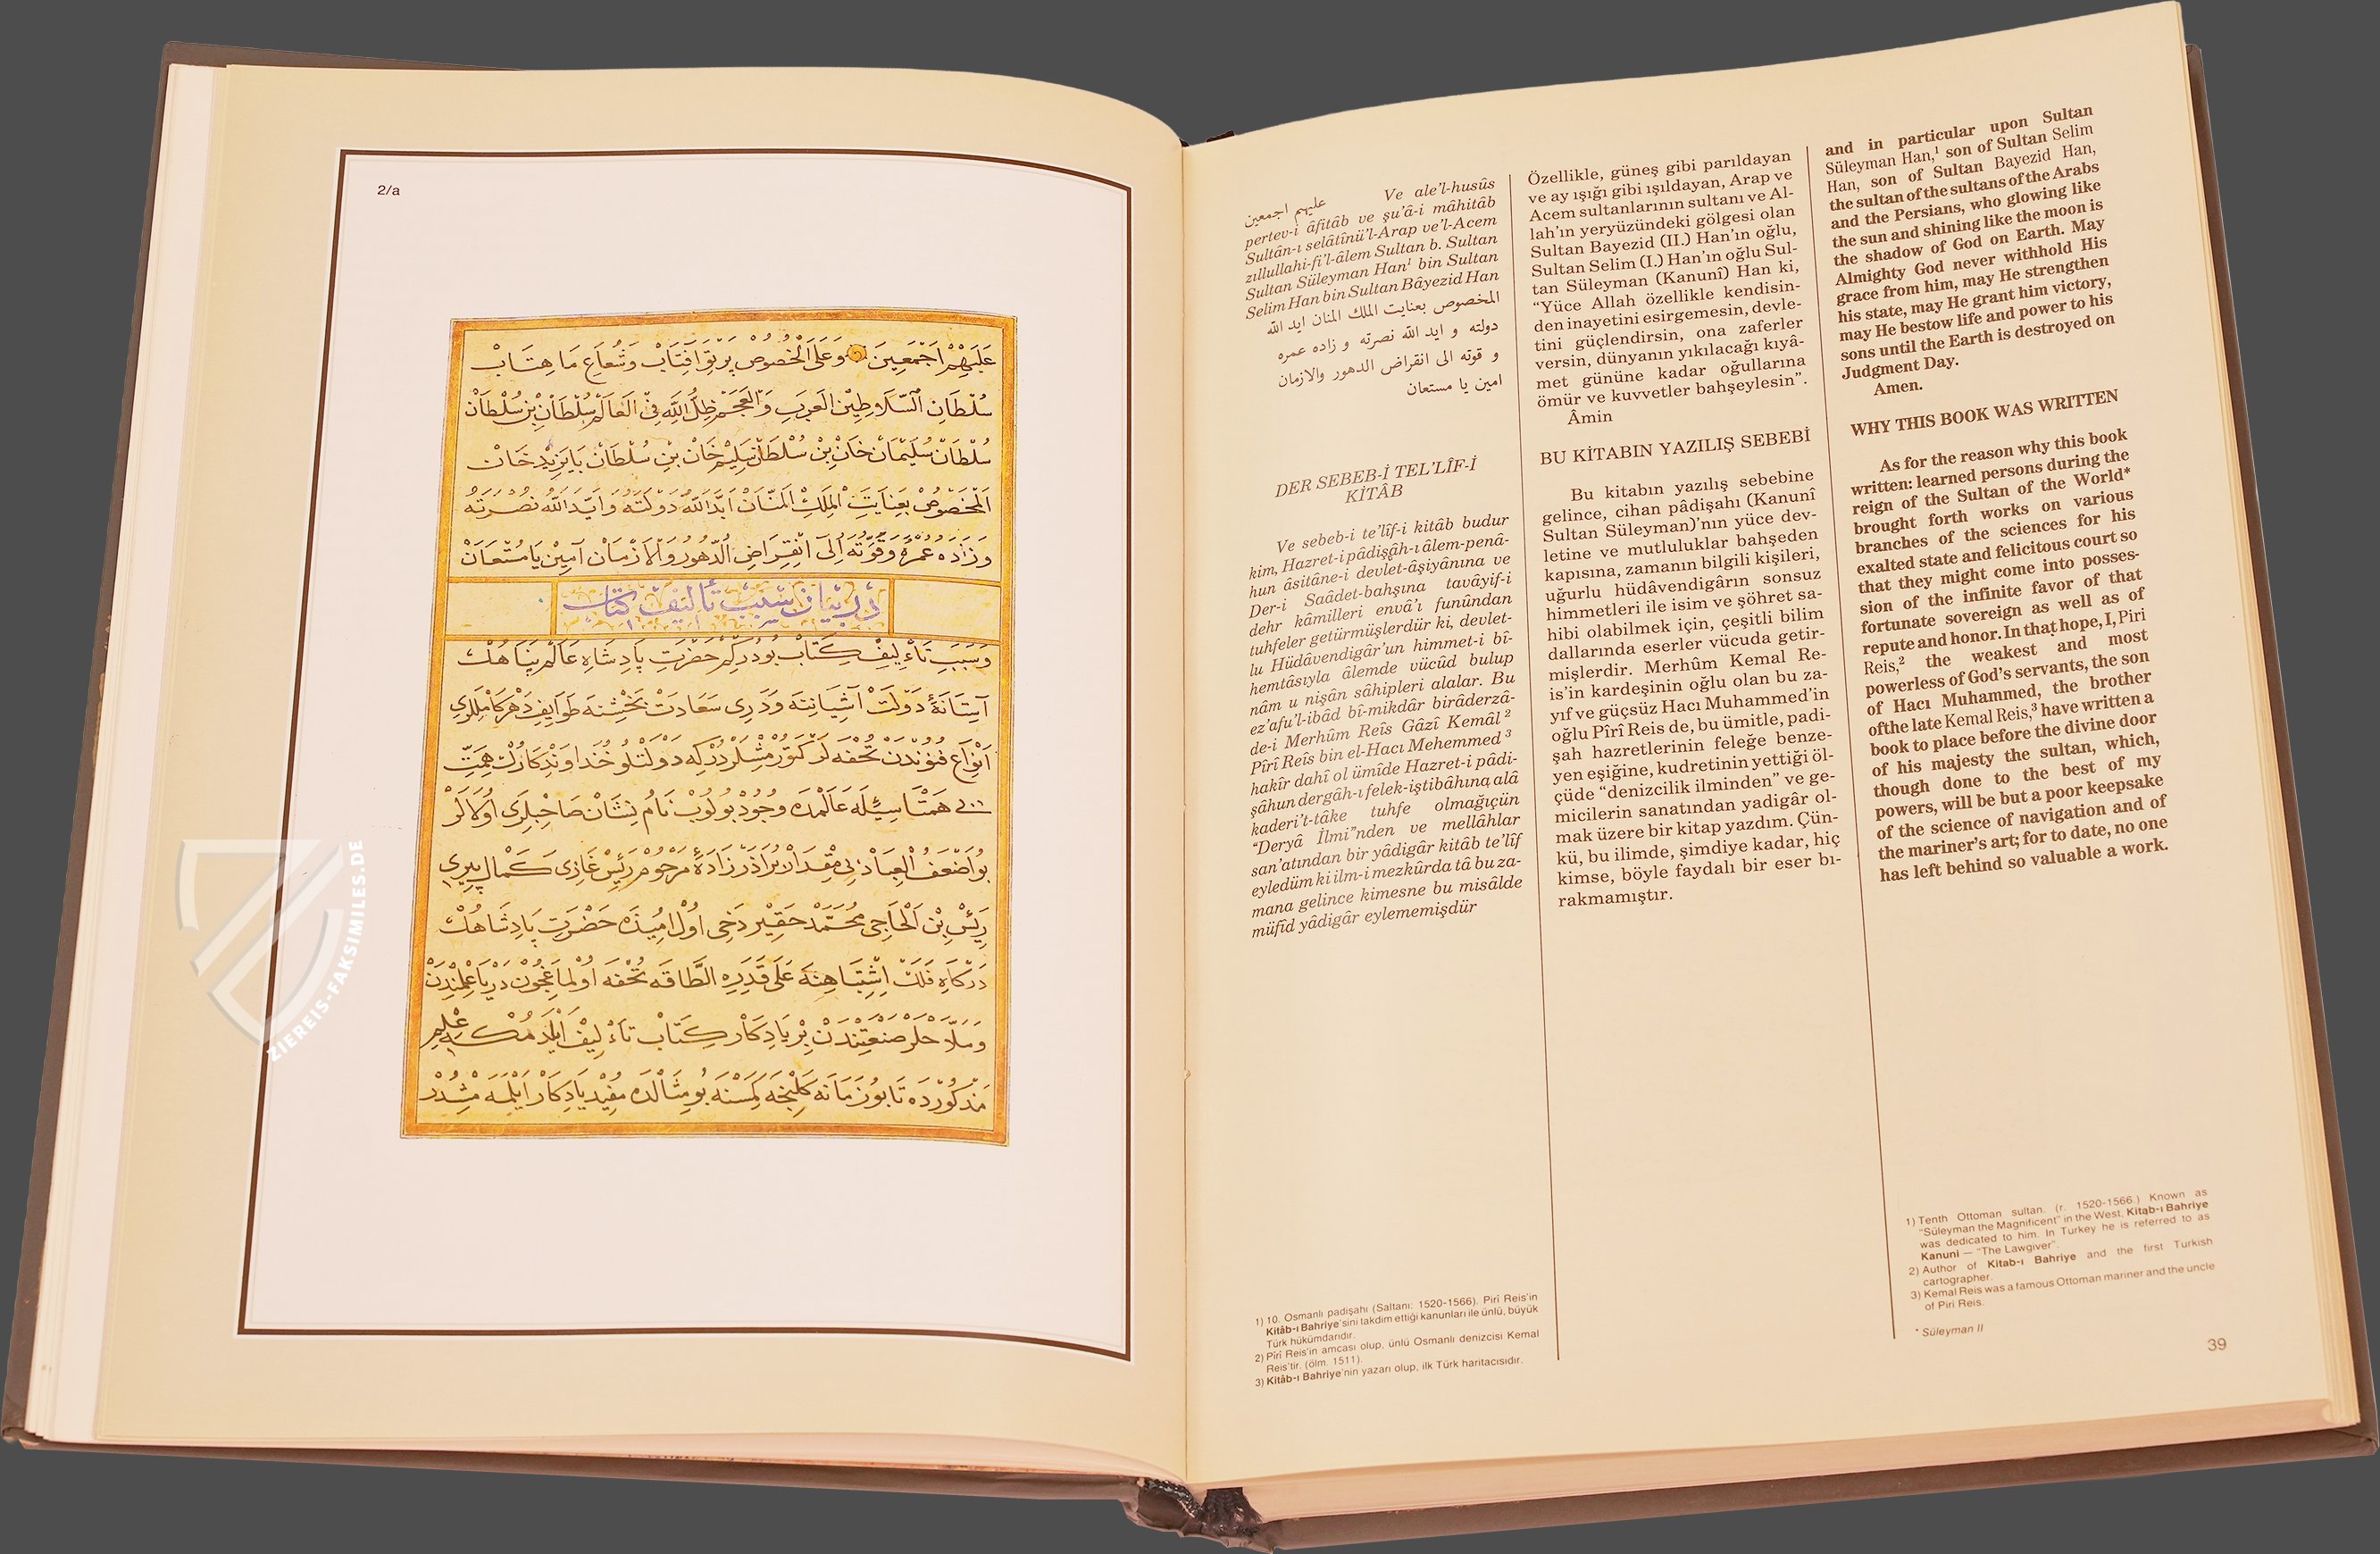 2/a
عَلَيْهِمْ اَجْمَعِينَ وَعَلَى الْخُصُوصْ پَرْتَوِ اٰفِتَابْ وَشُعَاعِ مَاهِتَابْ
سُلْطَانِ السَّلَاطِيْنِ الْعَرَبِ وَالْعَجَمْ ظِلُّ اللّٰهِ فِي الْعَالَمْ سُلْطَانْ بْنِ سُلْطَانْ
سُلْطَانْ سُلَيْمَانْ خَانْ بْنِ سُلْطَانْ سَلِيمْ خَانْ بْنِ سُلْطَانْ بَايَزِيدْ خَانْ
اَلْمَخْصُوصْ بِعِنَايَتِ الْمَلِكِ الْمَنَّانْ اَبَّدَ اللّٰهُ دَوْلَتَهُ وَاَيَّدَ اللّٰهُ نُصْرَتَهُ
وَزَادَ عُمْرَهُ وَقُوَّتَهُ اِلَى انْقِرَاضِ الدُّهُورْ وَالْاَزْمَانْ آمِينْ يَا مُسْتَعَانْ
در بيان سبب تأليف كتاب
وَسَبَبِ تَأْلِيفِ كِتَابْ بُودُرْكِمْ حَضْرَتِ پَادِشَاهِ عَالَمْ پَنَاهُكْ
آسِتَانَۀِ دَوْلَتْ آشِيَانِنَه وَدَرِى سَعَادَتْ بَخْشِنَه طَوَايِفِ دَهْرْ كَامِلْلَرِى
اَنْوَاعِ فُنُونْدَنْ تُحْفَه لَرْ كَتُورْمُشْلَرْدُرْكِه دَوْلَتْلُو خُدَاوَنْدِكَارُكْ هِمَّتِ
بى هَمْتَاسِيْلَه عَالَمْدَه وُجُودْ بُولُوبْ نَامُ نِشَانْ صَاحِبْلَرِى اُولَالَرْ
بُو اَضْعَفُ الْعِبَادْ بِى مِقْدَارْ بُرَادَرْزَادَۀِ مَرْحُومْ رَئِيسْ غَازِى كَمَالْ پِيرِى
رَئِيسْ بْنِ اَلْحَاجِى مُحَمَّدْ حَقِيرْ دَخِى اُولْ اُمِيدَه حَضْرَتِ پَادِشَاهُكْ
دَرْكَاهِ فَلَكْ اِشْتِبَاهِنَه عَلَى قَدَرِ الطَّاقَه تُحْفَه اُولْمَاغِچُونْ دَرْيَا عِلْمِنْدَنْ
وَمَلَّاحْلَرْ صَنْعَتِنْدَنْ بِرْ يَادِكَارْ كِتَابْ تَأْلِيفْ اَيْلَدُمْكِه عِلْمِ
مَذْكُورْدَه تَا بُو زَمَانَه كَلِنْجَه كِمْسَنَه بُو مِثَالْدَه مُفِيدْ يَادِكَارْ اَيْلَمَه مِشْدُرْ
ZIEREIS-FAKSIMILES.DE
عليهم اجمعين Ve ale’l-husûs
pertev-i âfitâb ve şu’â-i mâhitâb
Sultân-ı selâtînü’l-Arap ve’l-Acem
zıllullahi-fi’l-âlem Sultan b. Sultan
Sultan Süleyman Han¹ bin Sultan
Selim Han bin Sultan Bâyezid Han
المخصوص بعنايت الملك المنان ايد الله
دولته و ايد الله نصرته و زاده عمره
و قوته الى انقراض الدهور والازمان
امين يا مستعان
DER SEBEB-İ TEL’LÎF-İ
KİTÂB
Ve sebeb-i te’lîf-i kitâb budur
kim, Hazret-i pâdişâh-ı âlem-penâ-
hun âsitâne-i devlet-âşiyânına ve
Der-i Saâdet-bahşına tavâyif-i
dehr kâmilleri envâ’ı funûndan
tuhfeler getürmüşlerdür ki, devlet-
lu Hüdâvendigâr’un himmet-i bî-
hemtâsıyla âlemde vücûd bulup
nâm u nişân sâhipleri alalar. Bu
ez’afu’l-ibâd bî-mikdâr birâderzâ-
de-i Merhûm Reîs Gâzî Kemâl ²
Pîrî Reîs bin el-Hacı Mehemmed ³
hakîr dahî ol ümîde Hazret-i pâdi-
şâhun dergâh-ı felek-iştibâhına alâ
kaderi’t-tâke tuhfe olmağıçün
“Deryâ İlmi”nden ve mellâhlar
san’atından bir yâdigâr kitâb te’lîf
eyledüm ki ilm-i mezkûrda tâ bu za-
mana gelince kimesne bu misâlde
müfîd yâdigâr eylememişdür
1) 10. Osmanlı padişahı (Saltanı: 1520-1566). Pirî Reis’in
Kitâb-ı Bahriye’sini takdim ettiği kanunları ile ünlü, büyük
Türk hükümdarıdır.
2) Pîrî Reis’in amcası olup, ünlü Osmanlı denizcisi Kemal
Reis’tir. (ölm. 1511).
3) Kitâb-ı Bahriye’nin yazarı olup, ilk Türk haritacısıdır.
Özellikle, güneş gibi parıldayan
ve ay ışığı gibi ışıldayan, Arap ve
Acem sultanlarının sultanı ve Al-
lah’ın yeryüzündeki gölgesi olan
Sultan Bayezid (II.) Han’ın oğlu,
Sultan Selim (I.) Han’ın oğlu Sul-
tan Süleyman (Kanunî) Han ki,
“Yüce Allah özellikle kendisin-
den inayetini esirgemesin, devle-
tini güçlendirsin, ona zaferler
versin, dünyanın yıkılacağı kıyâ-
met gününe kadar oğullarına
ömür ve kuvvetler bahşeylesin”.
Âmin
BU KİTABIN YAZILIŞ SEBEBİ
Bu kitabın yazılış sebebine
gelince, cihan pâdişahı (Kanunî
Sultan Süleyman)’nın yüce dev-
letine ve mutluluklar bahşeden
kapısına, zamanın bilgili kişileri,
uğurlu hüdâvendigârın sonsuz
himmetleri ile isim ve şöhret sa-
hibi olabilmek için, çeşitli bilim
dallarında eserler vücuda getir-
mişlerdir. Merhûm Kemal Re-
is’in kardeşinin oğlu olan bu za-
yıf ve güçsüz Hacı Muhammed’in
oğlu Pîrî Reis de, bu ümitle, padi-
şah hazretlerinin feleğe benze-
yen eşiğine, kudretinin yettiği öl-
çüde “denizcilik ilminden” ve ge-
micilerin sanatından yadigâr ol-
mak üzere bir kitap yazdım. Çün-
kü, bu ilimde, şimdiye kadar, hiç
kimse, böyle faydalı bir eser bı-
rakmamıştır.
and in particular upon Sultan
Süleyman Han,¹ son of Sultan Selim
Han, son of Sultan Bayezid Han,
the sultan of the sultans of the Arabs
and the Persians, who glowing like
the sun and shining like the moon is
the shadow of God on Earth. May
Almighty God never withhold His
grace from him, may He strengthen
his state, may He grant him victory,
may He bestow life and power to his
sons until the Earth is destroyed on
Judgment Day.
Amen.
WHY THIS BOOK WAS WRITTEN
As for the reason why this book
written: learned persons during the
reign of the Sultan of the World*
brought forth works on various
branches of the sciences for his
exalted state and felicitous court so
that they might come into posses-
sion of the infinite favor of that
fortunate sovereign as well as of
repute and honor. In that hope, I, Piri
Reis,² the weakest and most
powerless of God’s servants, the son
of Hacı Muhammed, the brother
ofthe late Kemal Reis,³ have written a
book to place before the divine door
of his majesty the sultan, which,
though done to the best of my
powers, will be but a poor keepsake
of the science of navigation and of
the mariner’s art; for to date, no one
has left behind so valuable a work.
1) Tenth Ottoman sultan. (r. 1520-1566.) Known as
“Süleyman the Magnificent” in the West, Kitab-ı Bahriye
was dedicated to him. In Turkey he is referred to as
Kanuni — “The Lawgiver”.
2) Author of Kitab-ı Bahriye and the first Turkish
cartographer.
3) Kemal Reis was a famous Ottoman mariner and the uncle
of Piri Reis.
* Süleyman II
39